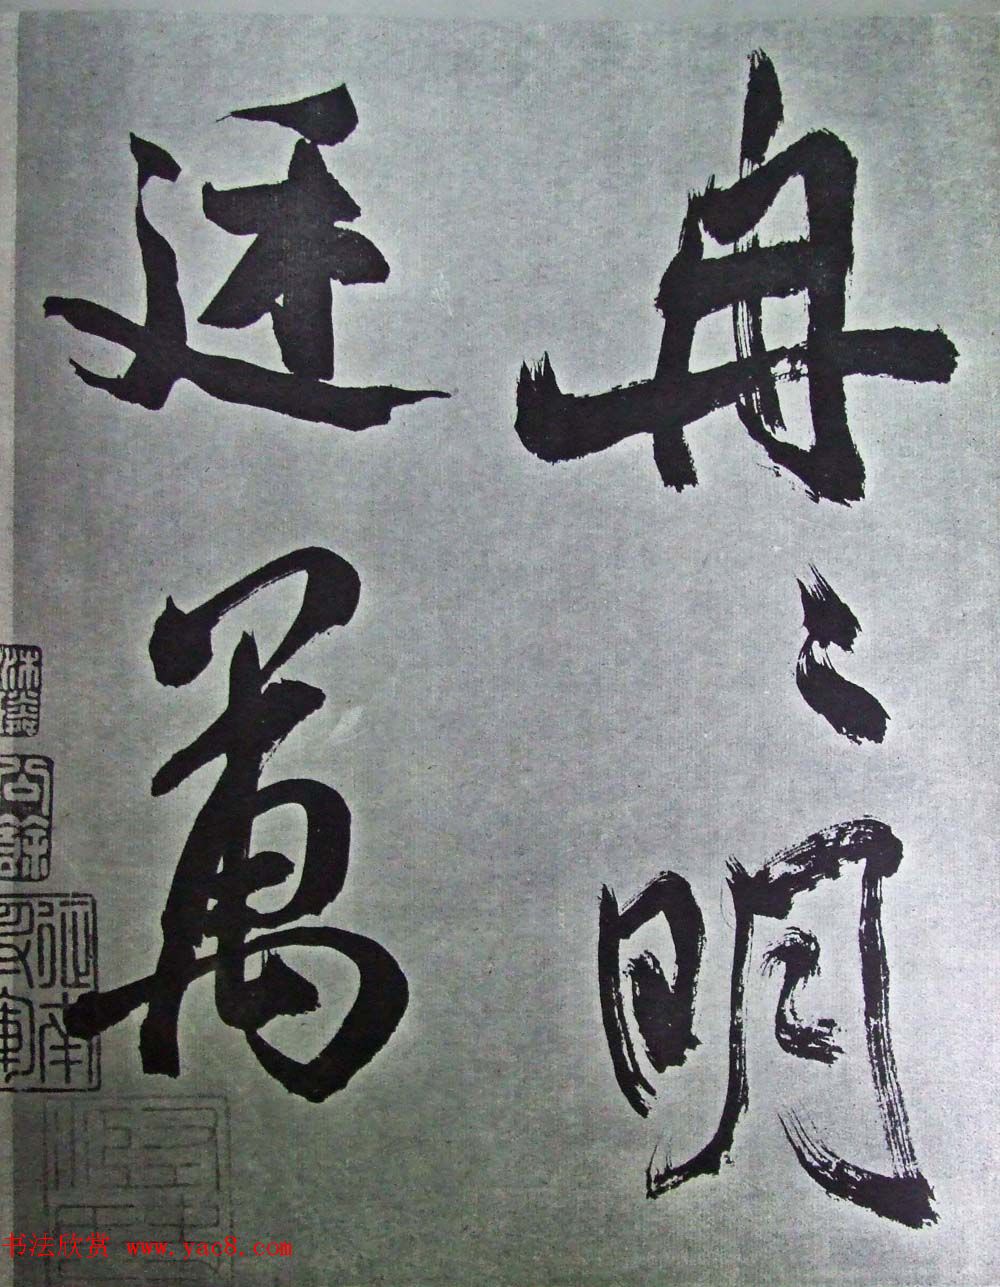 冉〻明
廷萬
书法欣赏 www.yac8.com